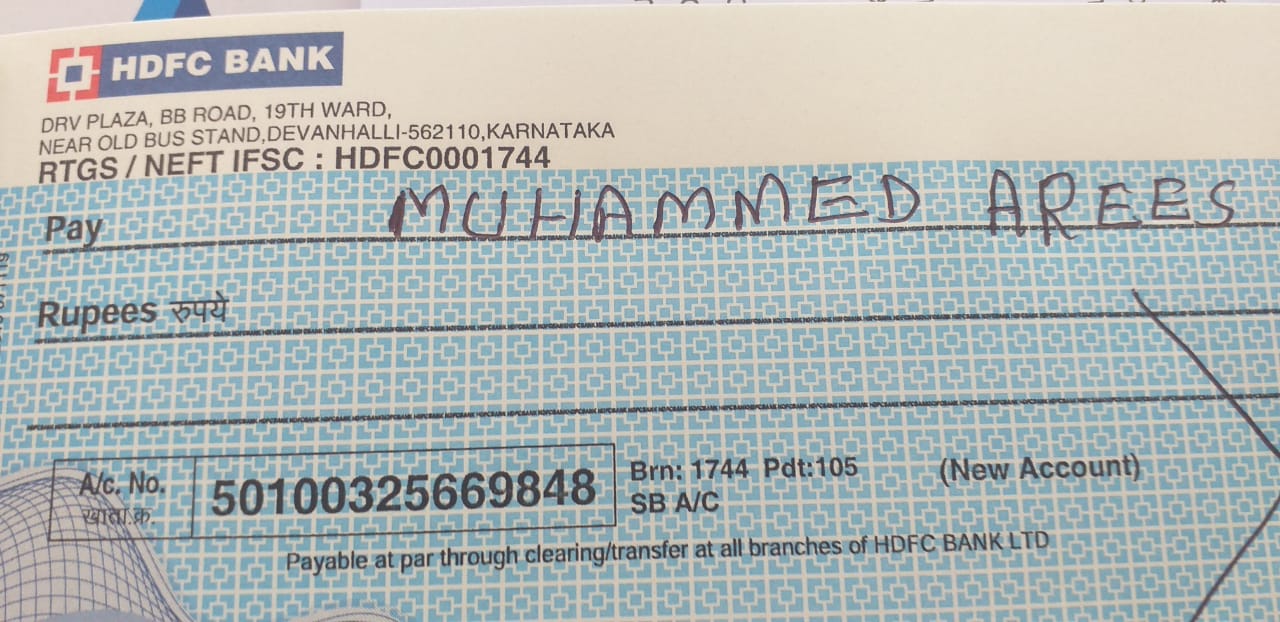 HDFC BANK
DRV PLAZA, BB ROAD, 19TH WARD,
NEAR OLD BUS STAND,DEVANHALLI-562110,KARNATAKA
RTGS / NEFT IFSC : HDFC0001744
Pay MUHAMMED AREES
Rupees रुपये
A/c. No. 50100325669848 Brn: 1744 Pdt:105 (New Account)
खाता.क्र. SB A/C
Payable at par through clearing/transfer at all branches of HDFC BANK LTD